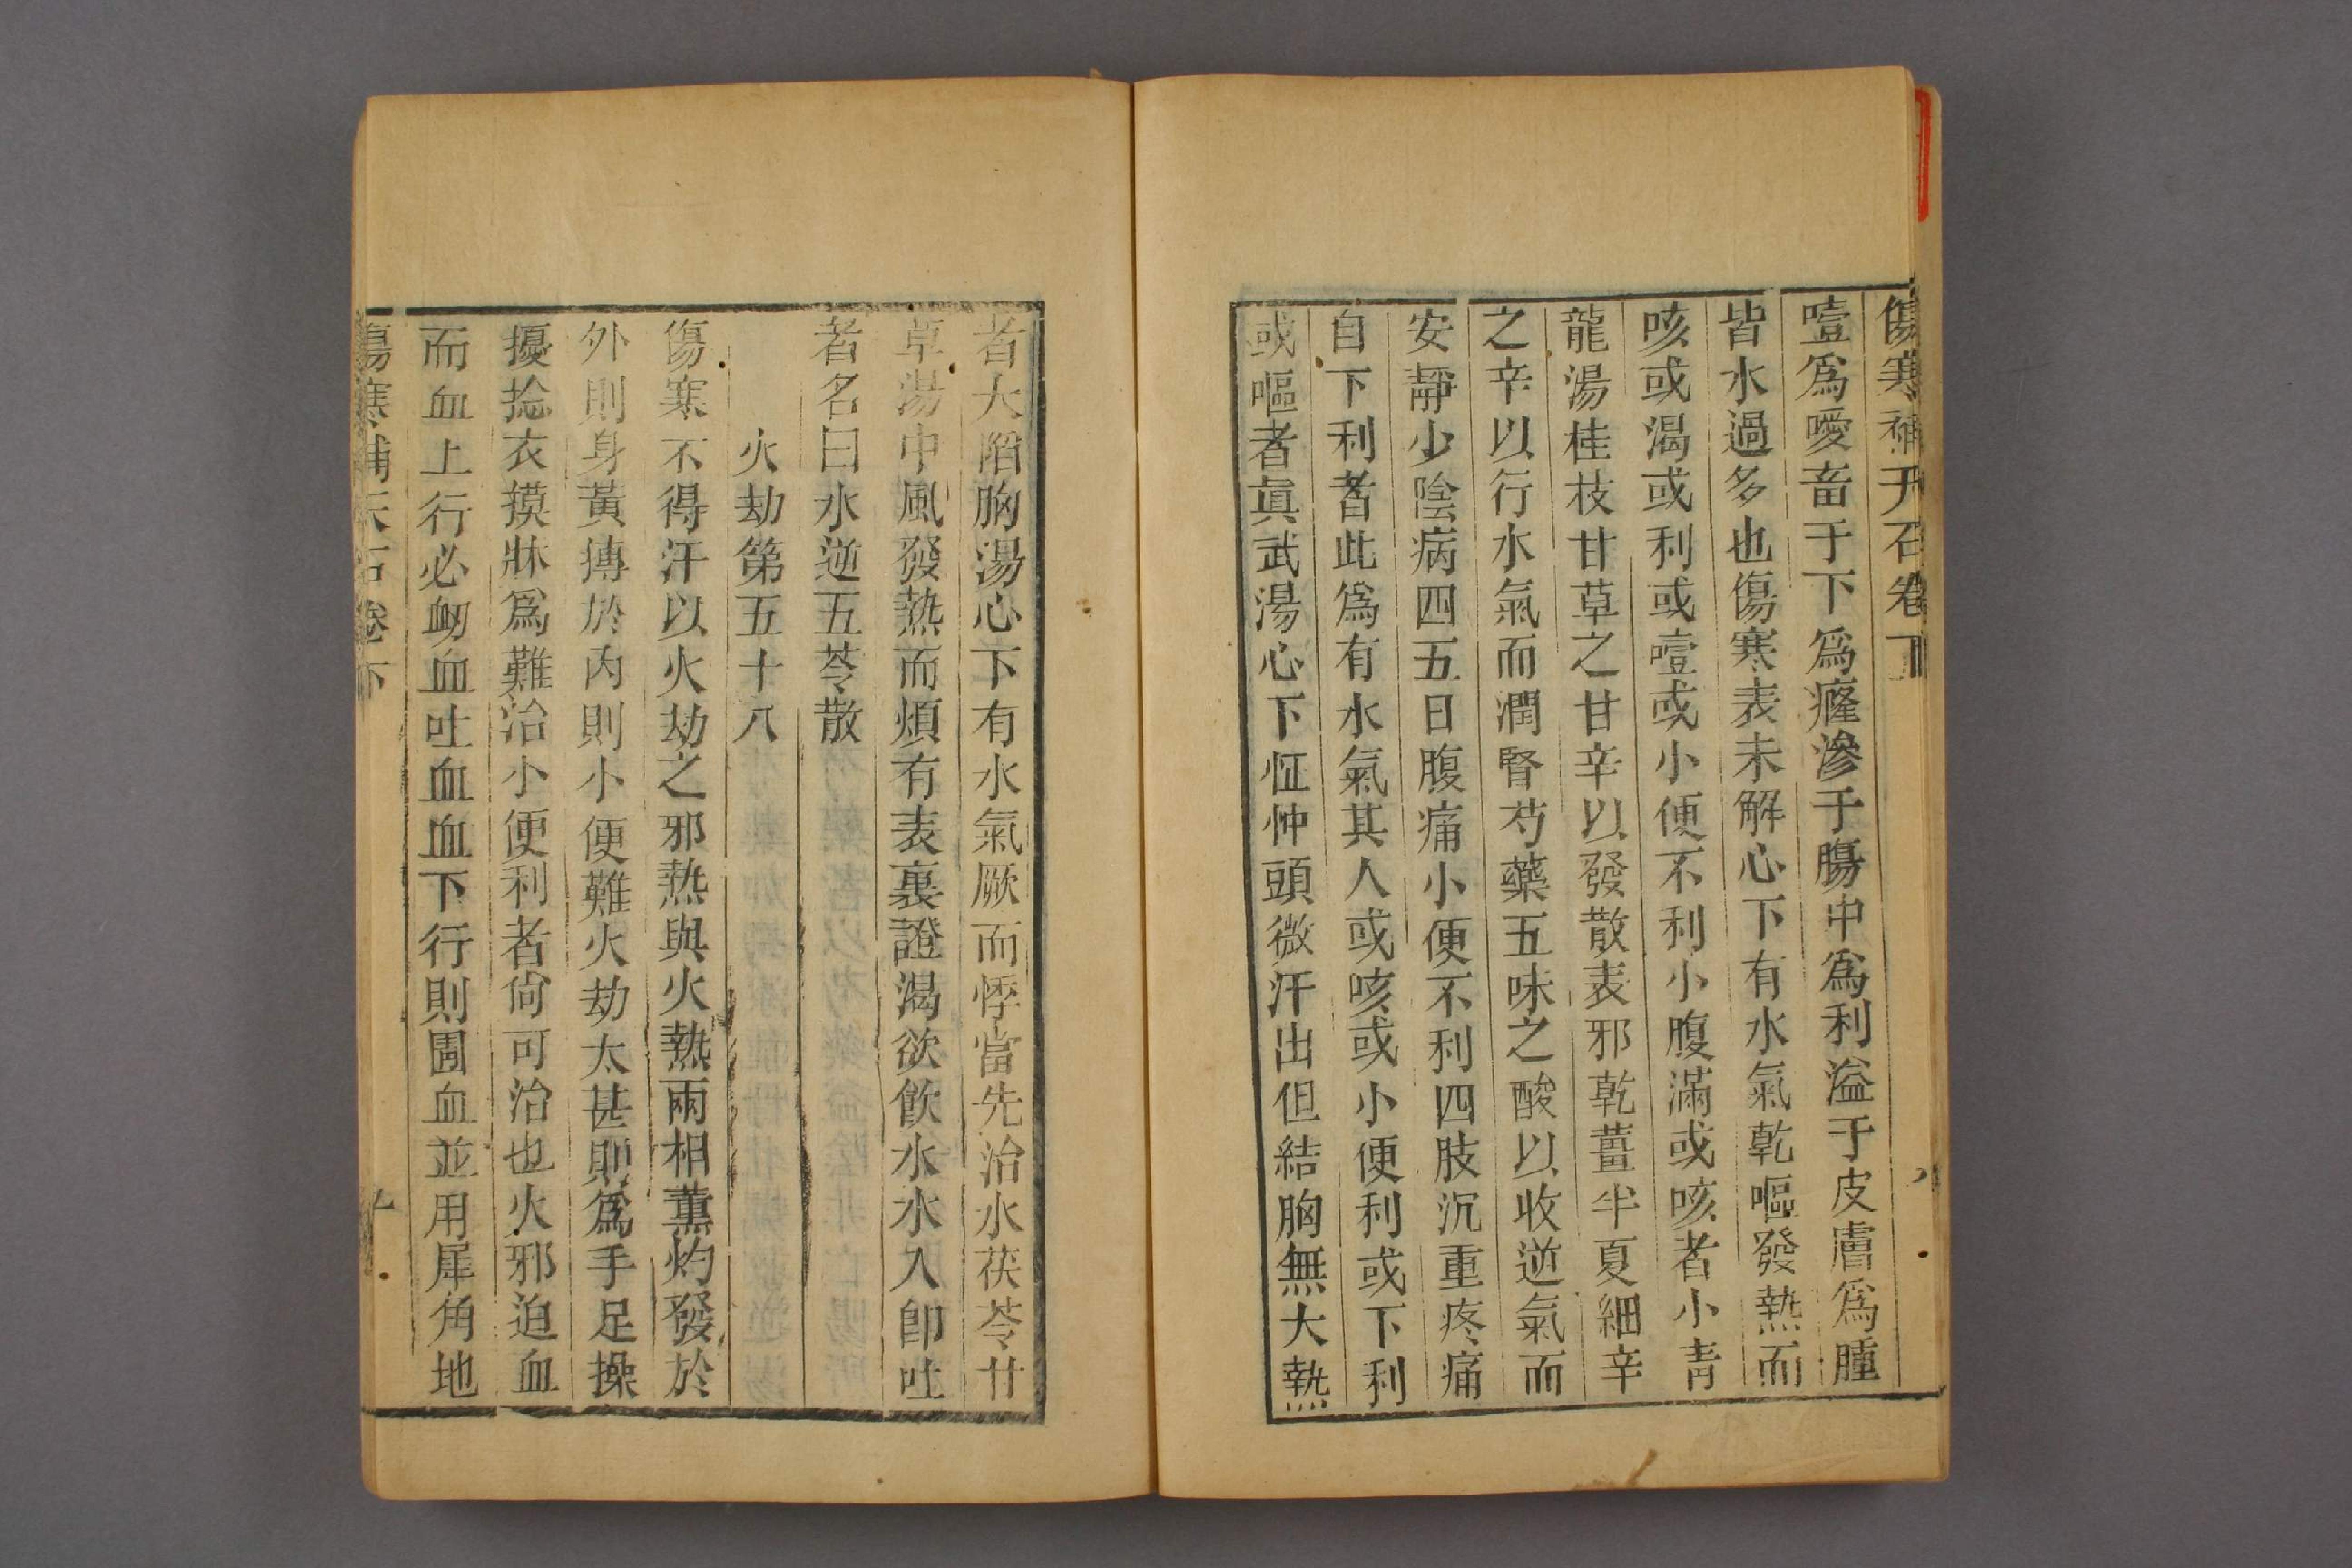 傷寒補天石卷下
噎爲噯畜于下爲癃滲于腸中爲利溢于皮膚爲腫
皆水過多也傷寒表未解心下有水氣乾嘔發熱而
咳或渴或利或噎或小便不利小腹滿或咳者小青
龍湯桂枝甘草之甘辛以發散表邪乾薑半夏細辛
之辛以行水氣而潤腎芍藥五味之酸以收逆氣而
安靜少陰病四五日腹痛小便不利四肢沉重疼痛
自下利者此爲有水氣其人或咳或小便利或下利
或嘔者眞武湯心下怔忡頭微汗出但結胸無大熱
者大陷胸湯心下有水氣厥而悸當先治水茯苓甘
草湯中風發熱而煩有表裏證渴欲飲水水入卽吐
者名曰水逆五苓散
火劫第五十八
傷寒不得汗以火劫之邪熱與火熱兩相薰灼發於
外則身黃摶於內則小便難火劫太甚則爲手足操
擾捻衣摸牀爲難治小便利者尙可治也火邪迫血
而血上行必衄血吐血血下行則圊血並用犀角地
傷寒補天石卷下